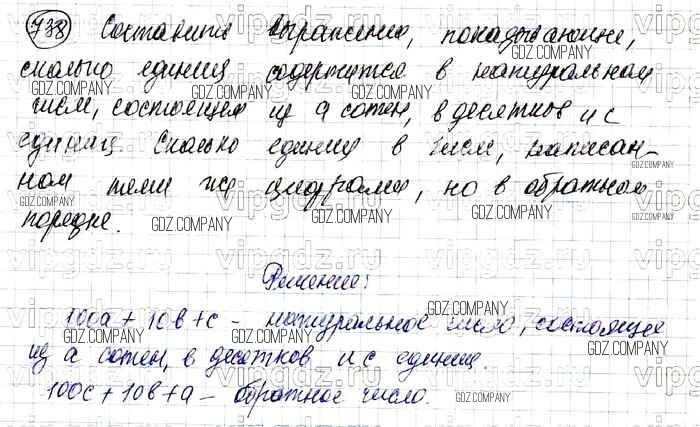 738 Составить выражение, показывающие,
сколько единиц содержится в натуральном
числе, состоящем из а сотен, в десятков и с
единиц. Сколько единиц в числе, написан-
ном теми же цифрами, но в обратном
порядке.
Решение:
100а + 10в + с - натуральное число, состоящее
из а сотен, в десятков и с единиц.
100с + 10в + а - обратное число.
GDZ.COMPANY
vipgdz.ru